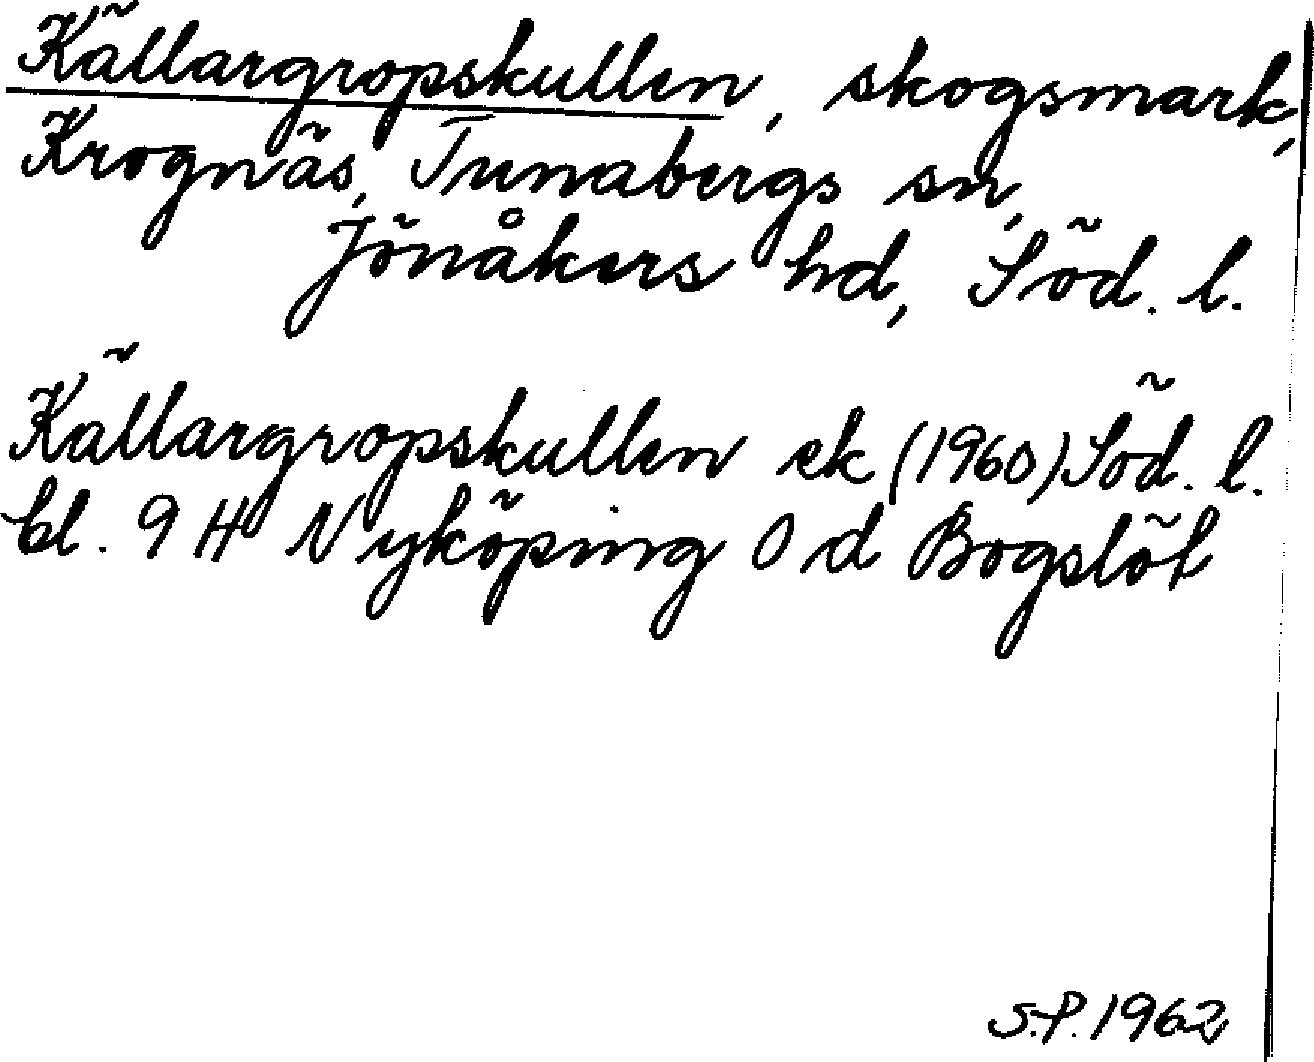 Källargropskullen, skogsmark,
Krognäs, Tunabergs sn,
Jönåkers hd, Söd. l.
Källargropskullen ek (1960) Söd. l.
bl. 9 H Nyköping 0 d Bogslöt
S.P. 1962